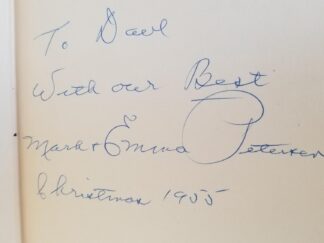 To Dave
With our Best
Mark & Emma Petersen
Christmas 1955